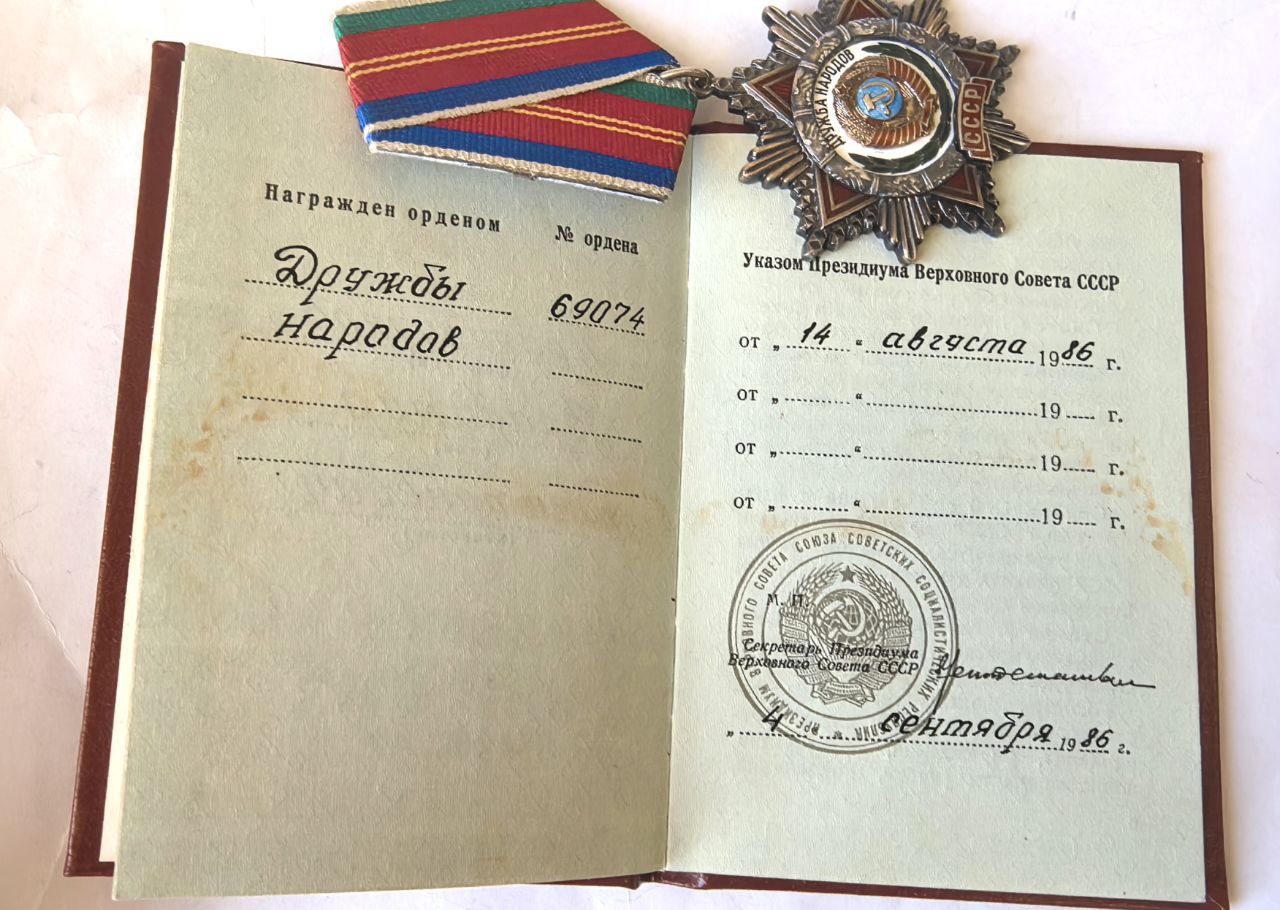 ДРУЖБА НАРОДОВ
СССР
Награжден орденом
№ ордена
Дружбы
69074
Народов
Указом Президиума Верховного Совета СССР
от „ 14 “ августа 1986 г.
от „ “ 19 г.
от „ “ 19 г.
от „ “ 19 г.
ПРЕЗИДИУМ ВЕРХОВНОГО СОВЕТА СОЮЗА СОВЕТСКИХ СОЦИАЛИСТИЧЕСКИХ РЕСПУБЛИК
М. П.
Секретарь Президиума
Верховного Совета СССР
„ 4 “ сентября 1986 г.